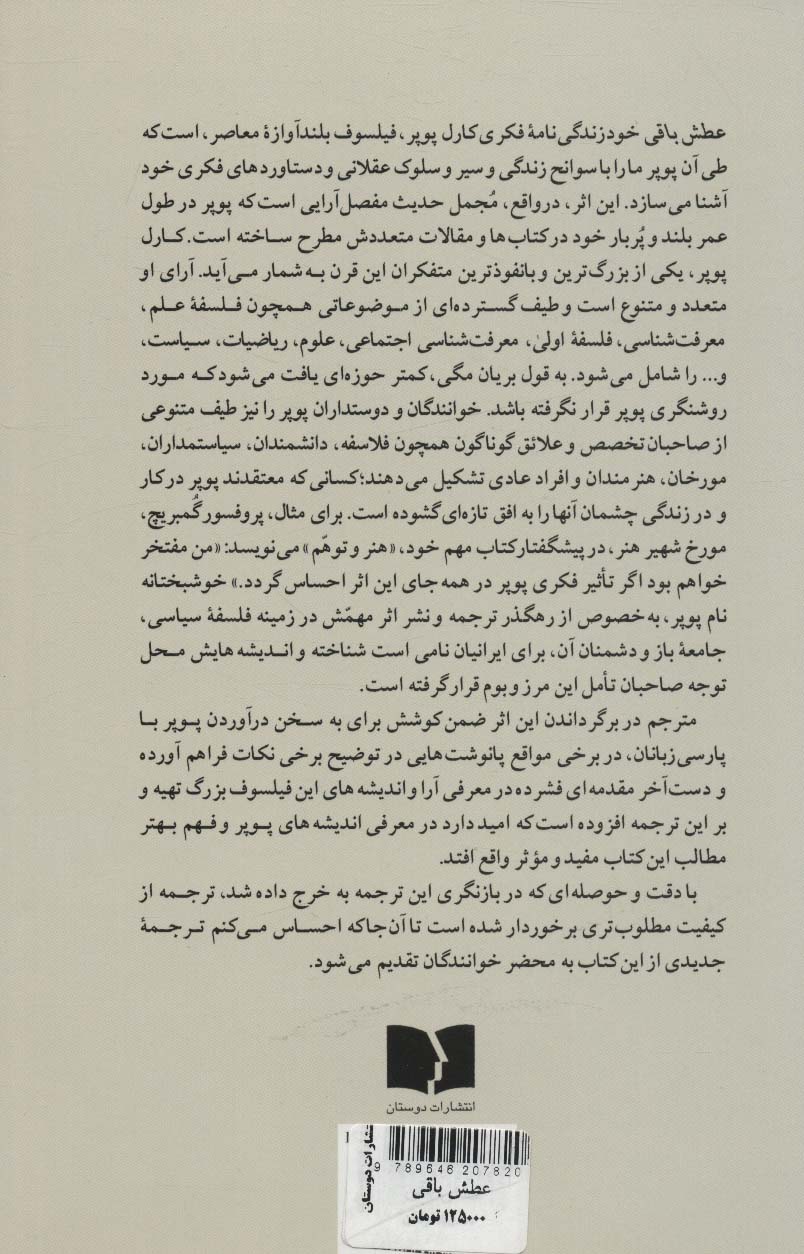 عطش باقی خودزندگی‌نامهٔ فکری کارل پوپر، فیلسوف بلندآوازهٔ معاصر، است که
طی آن پوپر ما را با سوانح زندگی و سیر و سلوک عقلانی و دستاوردهای فکری خود
آشنا می‌سازد. این اثر، درواقع، مُجمل حدیث مفصل‌آرایی است که پوپر در طول
عمر بلند و پُربار خود در کتاب‌ها و مقالات متعددش مطرح ساخته است. کارل
پوپر، یکی از بزرگ‌ترین و بانفوذترین متفکران این قرن به شمار می‌آید. آرای او
متعدد و متنوع است و طیف گسترده‌ای از موضوعاتی همچون فلسفهٔ علم،
معرفت‌شناسی، فلسفهٔ اولیٰ، معرفت‌شناسی اجتماعی، علوم، ریاضیات، سیاست،
و... را شامل می‌شود. به قول بریان مگی، کمتر حوزه‌ای یافت می‌شود که مورد
روشنگری پوپر قرار نگرفته باشد. خوانندگان و دوستداران پوپر را نیز طیف متنوعی
از صاحبان تخصص و علائق گوناگون همچون فلاسفه، دانشمندان، سیاستمداران،
مورخان، هنرمندان و افراد عادی تشکیل می‌دهند؛ کسانی که معتقدند پوپر در کار
و در زندگی چشمان آنها را به افق تازه‌ای گشوده است. برای مثال، پروفسور گُمبریچ،
مورخ شهیر هنر، در پیشگفتار کتاب مهم خود، «هنر و توهّم» می‌نویسد: «من مفتخر
خواهم بود اگر تأثیر فکری پوپر در همه جای این اثر احساس گردد.» خوشبختانه
نام پوپر، به خصوص از رهگذر ترجمه و نشر اثر مهمّش در زمینه فلسفهٔ سیاسی،
جامعهٔ باز و دشمنان آن، برای ایرانیان نامی است شناخته و اندیشه‌هایش محل
توجه صاحبان تأمل این مرز و بوم قرار گرفته است.
مترجم در برگرداندن این اثر ضمن کوشش برای به سخن درآوردن پوپر با
پارسی‌زبانان، در برخی مواقع پانوشت‌هایی در توضیح برخی نکات فراهم آورده
و دست‌آخر مقدمه‌ای فشرده در معرفی آرا و اندیشه‌های این فیلسوف بزرگ تهیه و
بر این ترجمه افزوده است که امید دارد در معرفی اندیشه‌های پوپر و فهم بهتر
مطالب این کتاب مفید و مؤثر واقع افتد.
با دقت و حوصله‌ای که در بازنگری این ترجمه به خرج داده شد، ترجمه از
کیفیت مطلوب‌تری برخوردار شده است تا آن‌جا که احساس می‌کنم ترجمهٔ
جدیدی از این کتاب به محضر خوانندگان تقدیم می‌شود.
انتشارات دوستان
دوستان
9 789646 207820
عطش باقی
۱۲۵۰۰۰ تومان